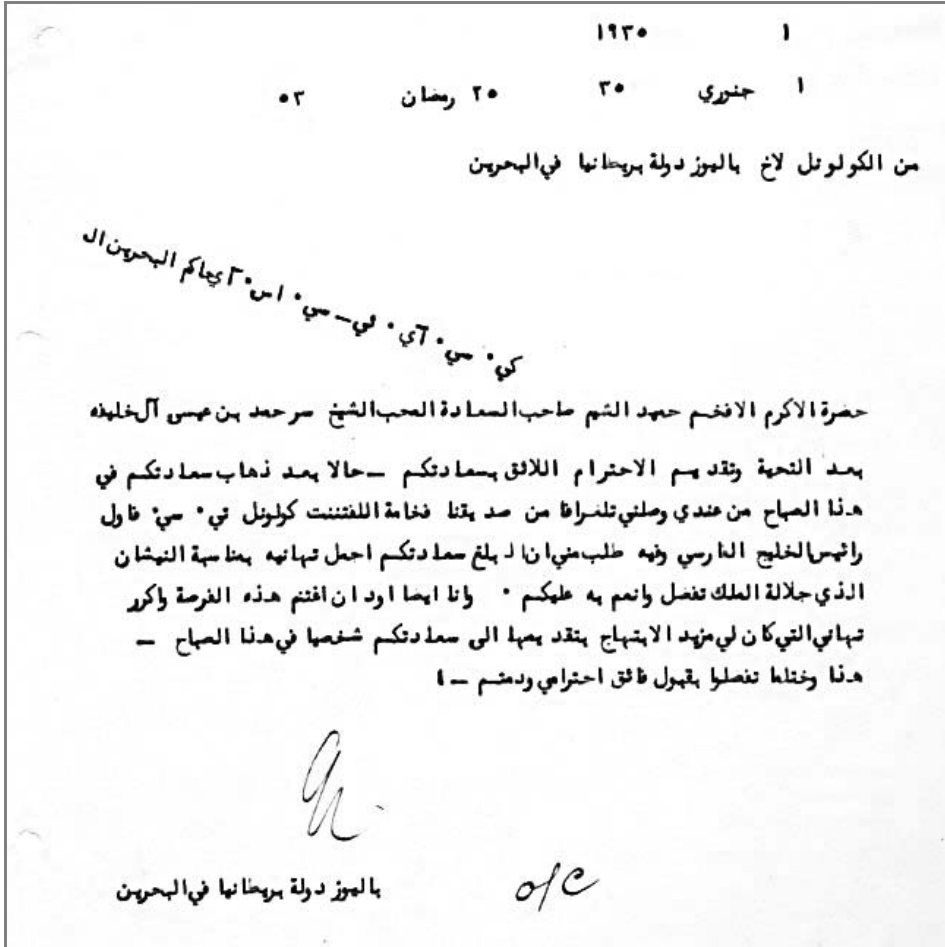 ١ ١٩٣٥
١ جنوري ٣٥ ٢٥ رمضان ٥٣
من الكولونل لاخ باليوز دولة بريطانيا في البحرين
كي٠ سي٠ آي٠ ئي — سي٠ اس٠ آي حاكم البحرين ال
حضرة الاكرم الافخم حميد الشيم صاحب السعادة المحب الشيخ سر حمد بن عيسى آل خليفه
بعد التحية وتقديم الاحترام اللائق بسعادتكم — حالا بعد ذهاب سعادتكم في
هذا الصباح من عندي وصلني تلغرافا من صديقنا فخامة اللفتننت كولونل تي٠ سي٠ فاول
رائيس الخليج الفارسي وفيه طلب مني ان ابلغ سعادتكم اجمل تهانيه بمناسبة النيشان
الذي جلالة الملك تفضل وانعم به عليكم ٠ وانا ايضا اود ان اغتنم هذه الفرصة واكرر
تهاني التي كان لي مزيد الابتهاج بتقديمها الى سعادتكم شخصيا في هذا الصباح —
هذا وختاما تفضلوا بقبول فائق احترامي ودمتم —
باليوز دولة بريطانيا في البحرين
o/c